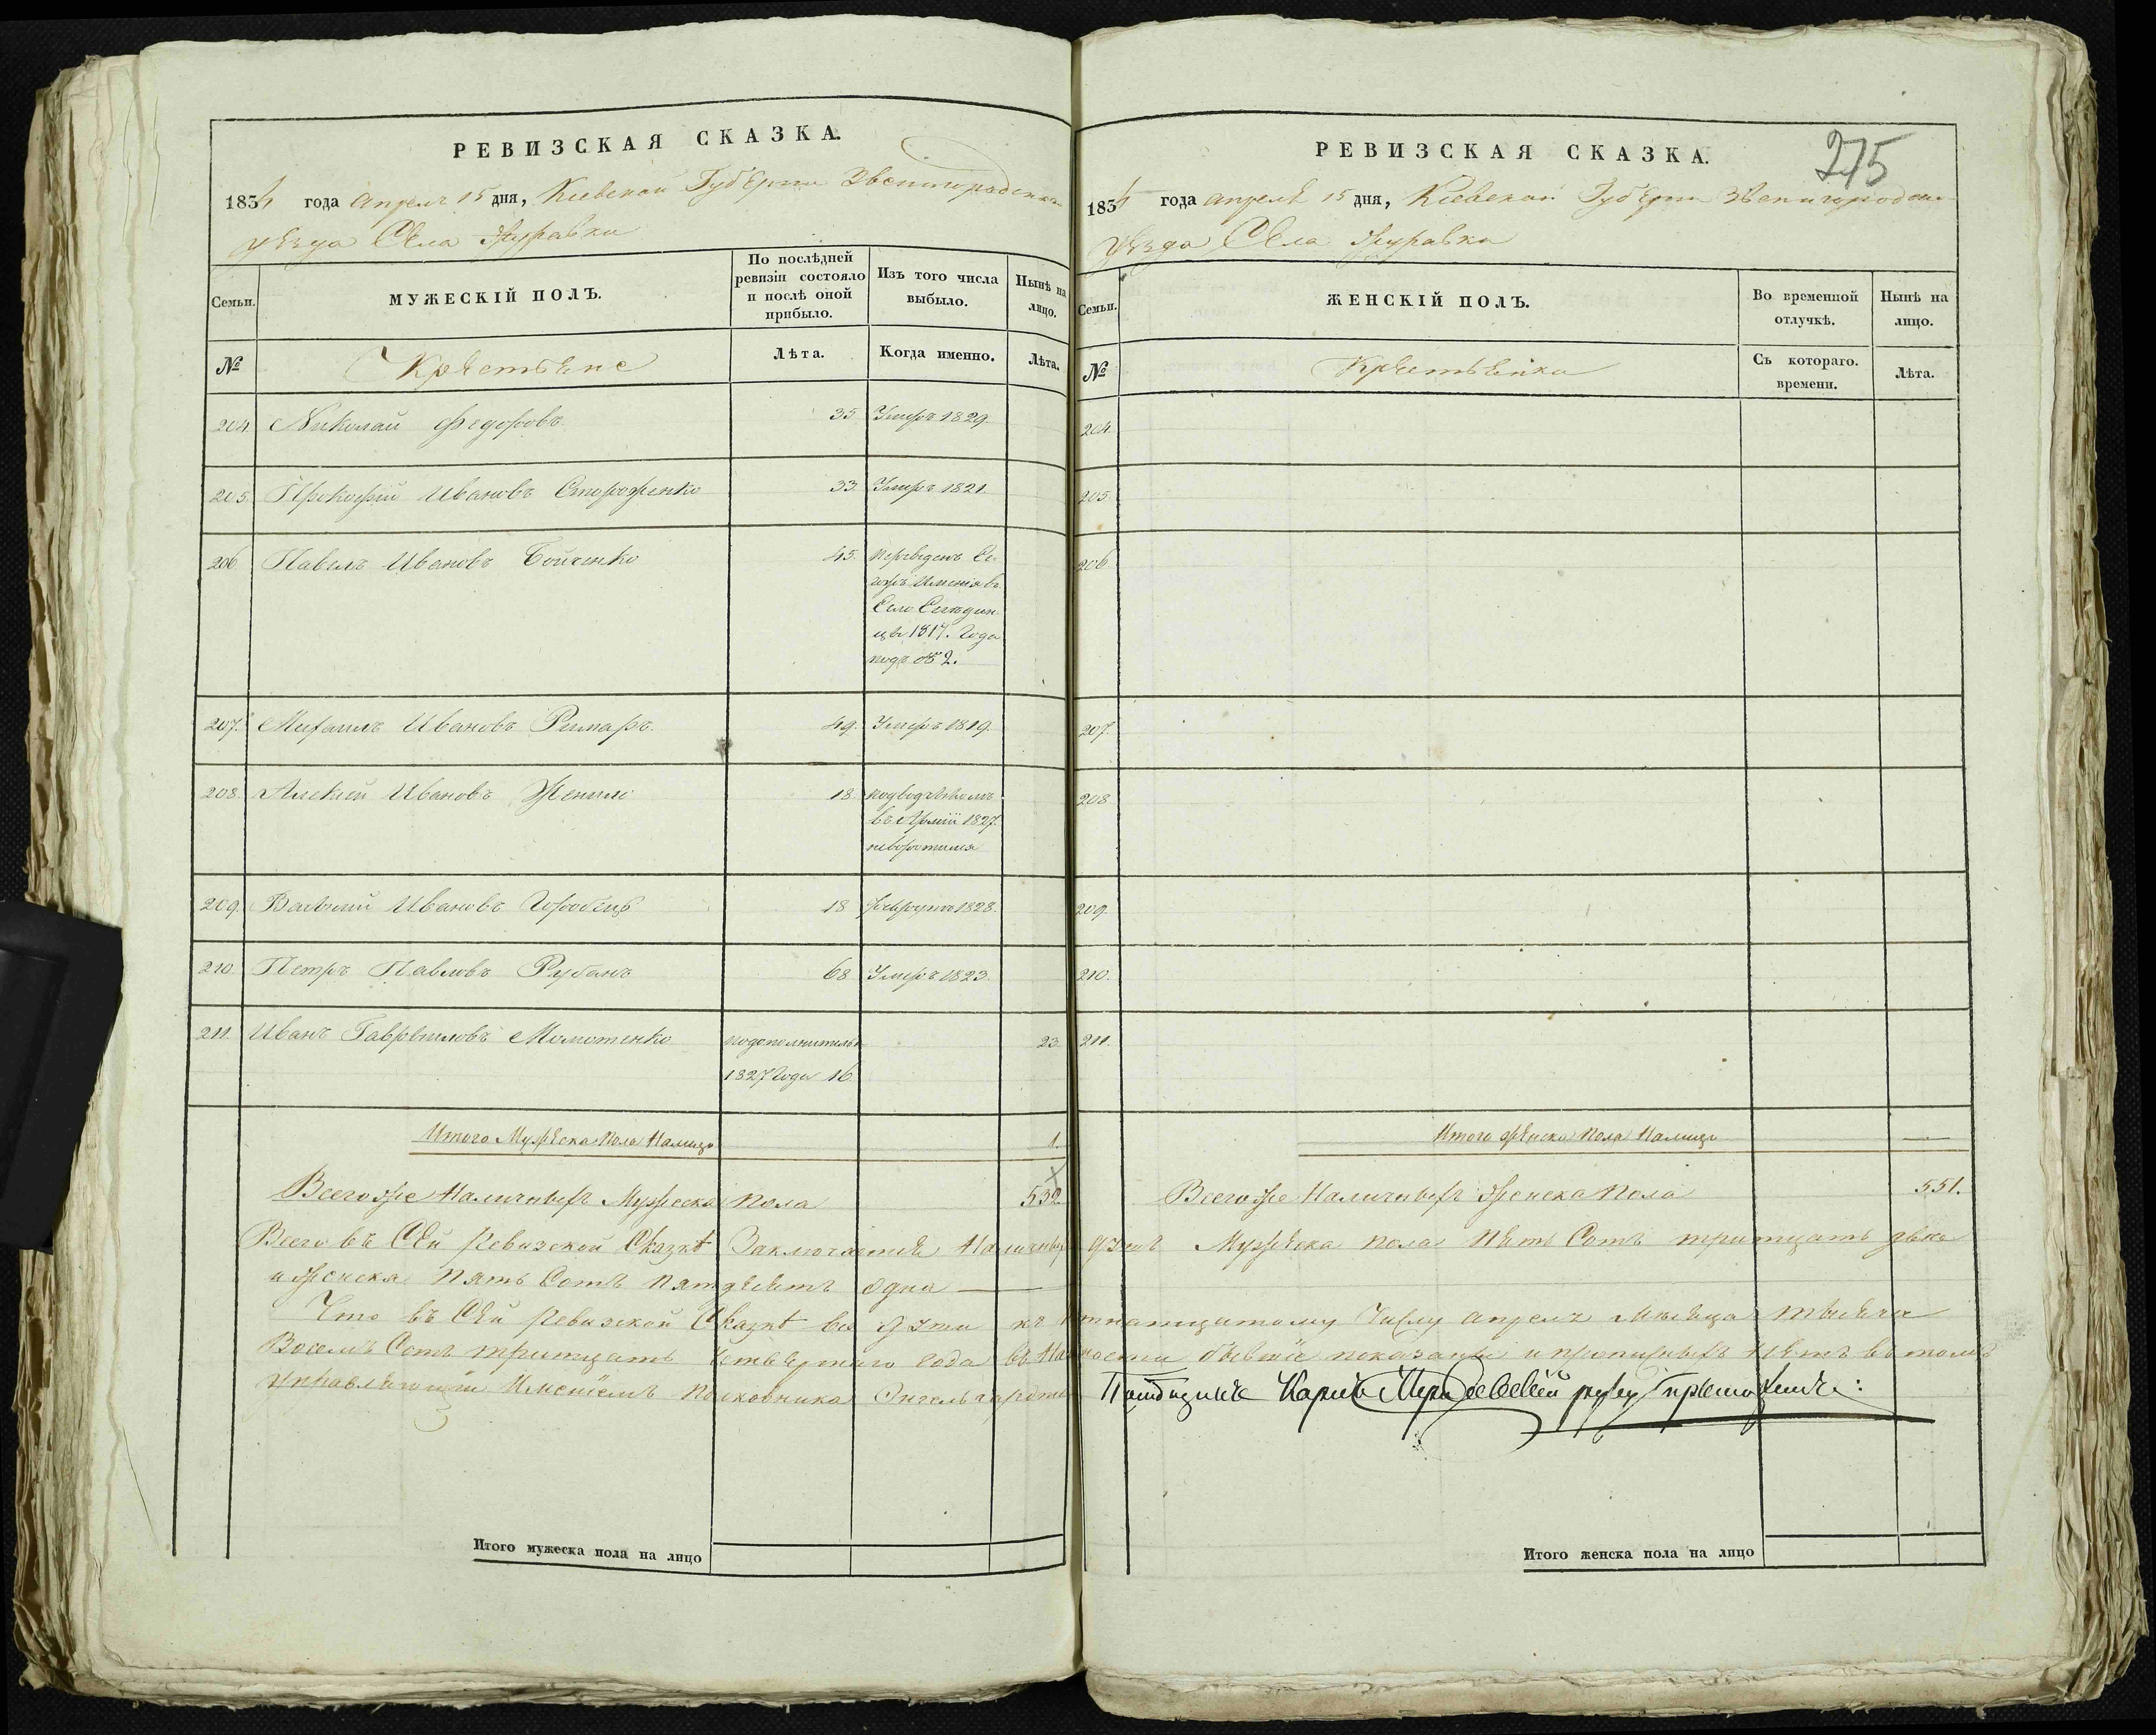 РЕВИЗСКАЯ СКАЗКА.
1834 года Апреля 15 дня, Киевской Губернии Звенигородскаго
уезда Села Журавки
Семьи.
МУЖЕСКІЙ ПОЛЪ.
По послѣдней ревизіи состояло и послѣ оной прибыло.
Изъ того числа выбыло.
Нынѣ на лицо.
№
Крестьяне
Лѣта.
Когда именно.
Лѣта.
204. Николай Федоровъ 35 Умеръ 1829.
205. Прокофій Ивановъ Стороженко 33 Умеръ 1821.
206. Павелъ Ивановъ Бойченко 45. переведенъ
имения въ
Село
1817. Года
подъ № 2.
207. Михаилъ Ивановъ Римаръ. 49. Умеръ 1819.
208. Алексей Ивановъ 18.
въ Армии 1827.
неворотился
209. Василий Ивановъ Горобець 18 1828.
210. Петръ Павловъ Рубанъ 68 Умеръ 1823.
211. Иванъ Гавриловъ Момотенко подополнительн 23.
1827 Года 16
Итого Мужеска Пола Налицо 1.
Всего же Наличныхъ Мужеска Пола 532
Всего въ Сей Ревизской Сказкѣ Заключается Наличныхъ
и Женска Пять Сотъ Пятдесятъ одна —
Что въ Сей Ревизской Сказкѣ все души къ
Восемь Сотъ тритцать Четвертаго года въ
Управляющій Имениемъ Полковника Энгельгардта
Итого мужеска пола на лицо
275
РЕВИЗСКАЯ СКАЗКА.
1834 года Апреля 15 дня, Киевской Губернии Звенигородскаго
уезда Села Журавки
Семьи.
ЖЕНСКІЙ ПОЛЪ.
Во временной отлучкѣ.
Нынѣ на лицо.
№
Крестьянки
Съ котораго. времени.
Лѣта.
204.
205.
206.
207.
208.
209.
210.
211.
Итого Женска Пола Налицо —
Всего же Наличныхъ Женска Пола 551.
душъ Мужеска пола Пять Сотъ тритцать два
Числу Апреля Месяца тысяча
показаны и прописныхъ нетъ въ томъ
Итого женска пола на лицо